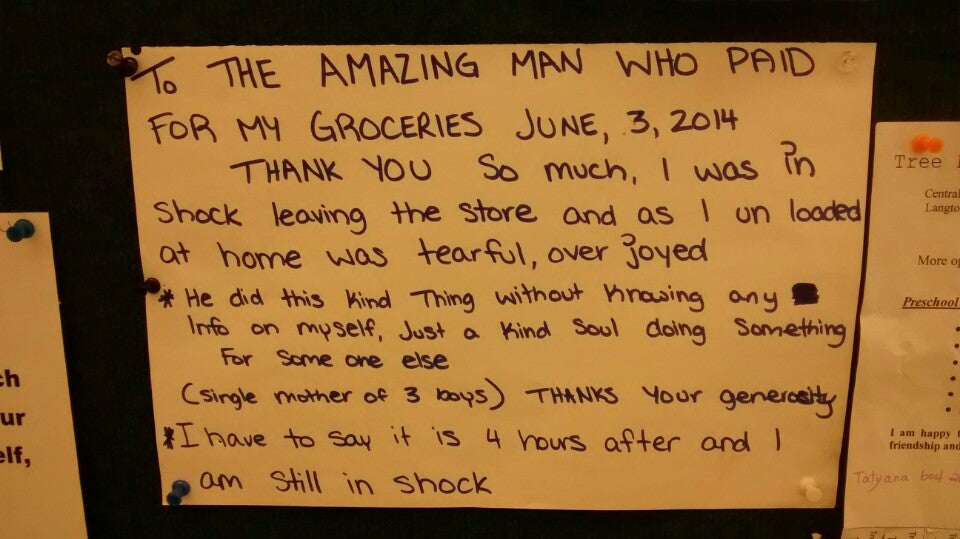 To THE AMAZING MAN WHO PAID
FOR MY GROCERIES JUNE, 3, 2014
THANK YOU So much, I was in
Shock leaving the store and as I un loaded
at home was tearful, over joyed
* He did this kind Thing without knowing any
Info on myself, Just a kind Soul doing Something
For Some one else
(single mother of 3 boys) THANKS Your generosity
* I have to say it is 4 hours after and I
am Still in shock
ch
ur
elf,
Tree
Central
Langto
More op
Preschool
I am happy t
friendship and
Tatyana